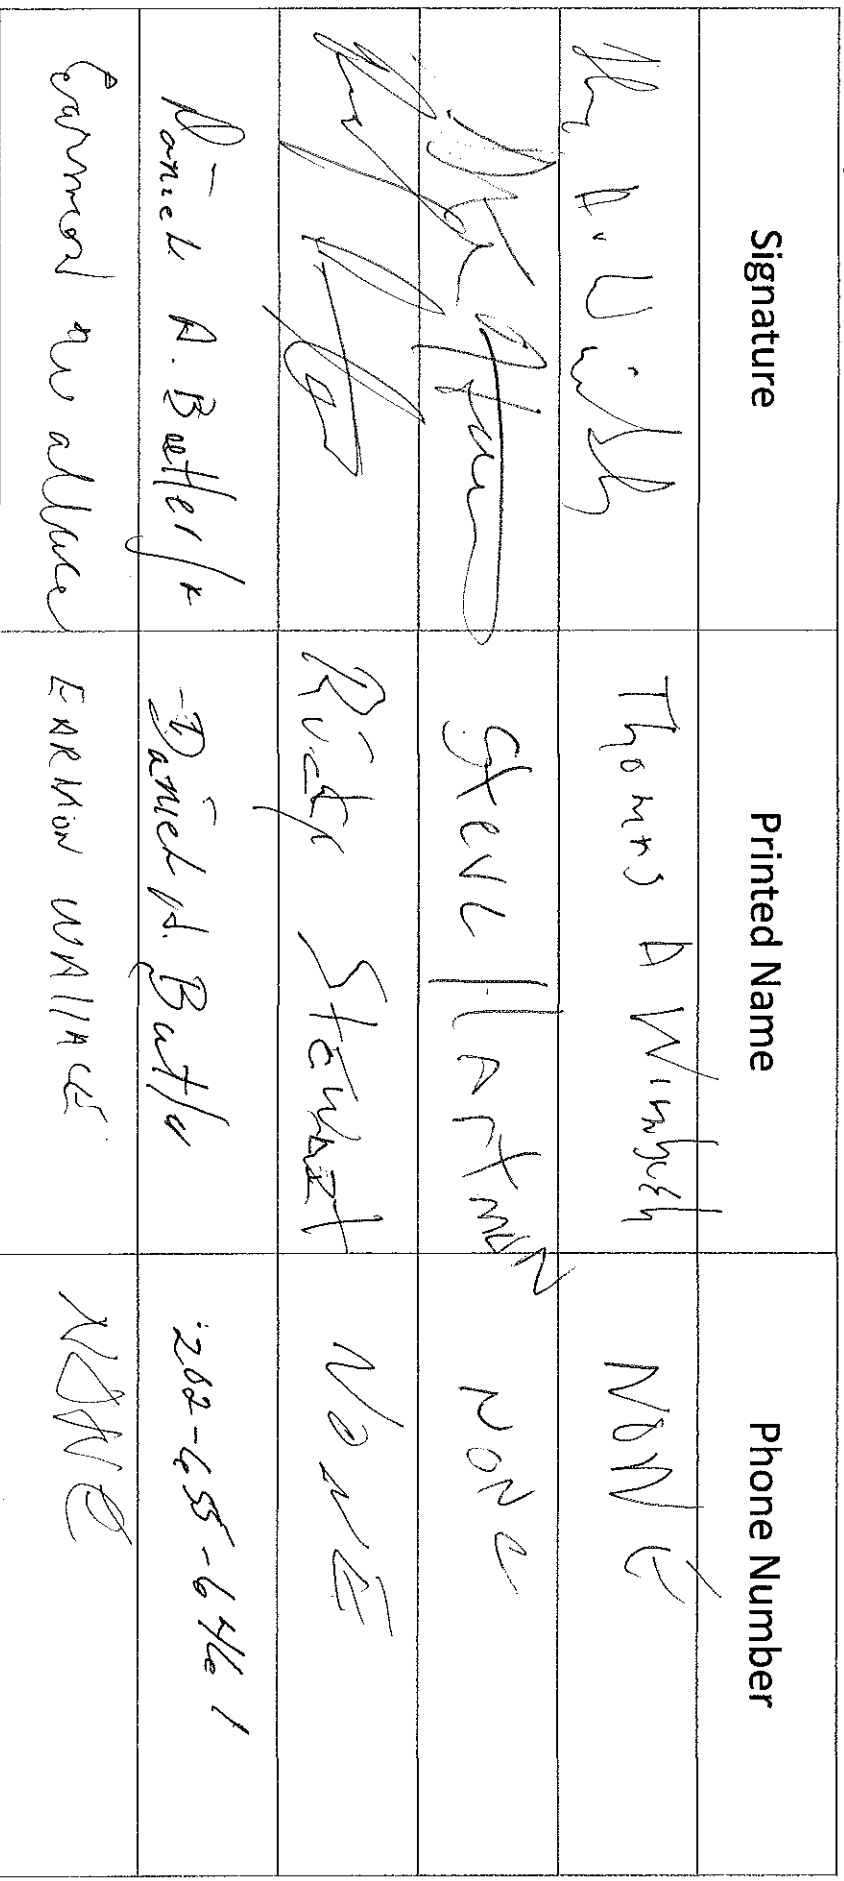 Signature Printed Name Phone Number
Thomas A Winbush NONE
Steve HArtmAN NONe
Ricky StewaRt NONE
Daniel A. Butler Jr Daniel A. Butler 202-655-6461
Earmon W allace EARMON WAllACE NONE